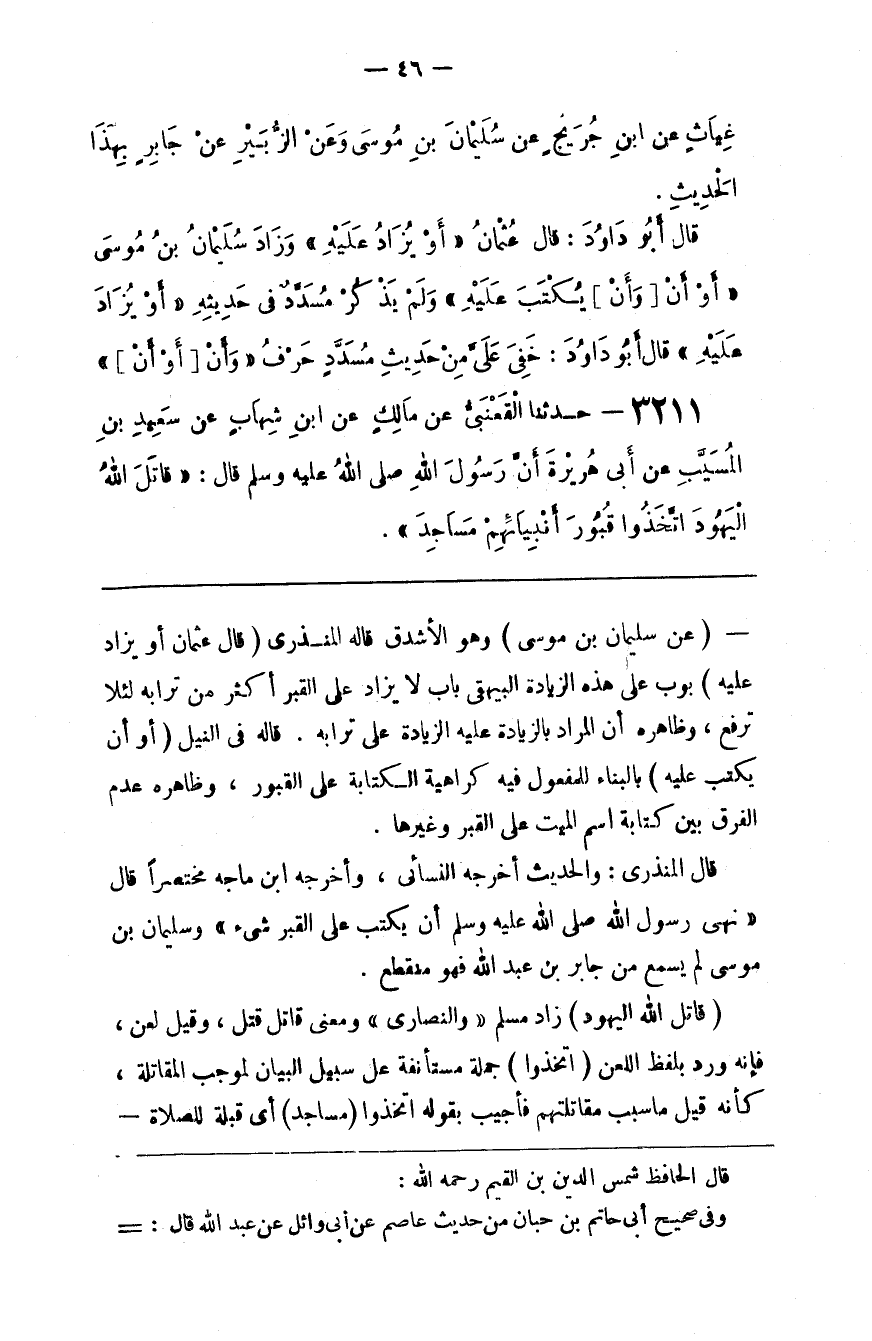 — ٤٦ —
غِيَاثٍ عن ابنِ جُرَيْجٍ عن سُلَيْمَانَ بنِ مُوسَى وَعَنْ الزُّبَيْرِ عنْ جَابِرٍ بِهَذَا
الْحَدِيثِ .
قال أَبُو دَاوُدَ : قال عُثْمَانُ « أَوْ يُزَادُ عَلَيْهِ » وَزَادَ سُلَيْمَانُ بنُ مُوسَى
« أَوْ أَنْ [ وَأَنْ ] يُكْتَبَ عَلَيْهِ » وَلَمْ يَذْكُرْ مُسَدَّدٌ فى حَدِيثِهِ « أَوْ يُزَادَ
عَلَيْهِ » قال أَبُو دَاوُدَ : خَفِىَ عَلَىَّ مِنْ حَدِيثِ مُسَدَّدٍ حَرْفُ « وَأَنْ [ أَوْ أَنْ ] »
٣٢١١ — حـدثنا الْقَعْنَبِىُّ عن مَالِكٍ عن ابنِ شِهَابٍ عن سَعِيدِ بنِ
المُسَيَّبِ عن أَبى هُرَيْرَةَ أَنَّ رَسُولَ اللهِ صلى اللهُ عليه وسلم قال : « قَاتَلَ اللهُ
الْيَهُودَ اتَّخَذُوا قُبُورَ أَنْبِيَائِهِمْ مَسَاجِدَ » .
— ( عن سليمان بن موسى ) وهو الأشدق قاله المنـذرى ( قال عثمان أو يزاد
عليه ) بوب على هذه الزيادة البيهقى باب لا يزاد على القبر أكثر من ترابه لئلا
ترفع ، وظاهره أن المراد بالزيادة عليه الزيادة على ترابه . قاله فى النيل ( أو أن
يكتب عليه ) بالبناء للمفعول فيه كراهية الـكتابة على القبور ، وظاهره عدم
الفرق بين كتابة اسم الميت على القبر وغيرها .
قال المنذرى : والحديث أخرجه النسائى ، وأخرجه ابن ماجه مختصراً قال
« نهى رسول الله صلى الله عليه وسلم أن يكتب على القبر شىء » وسليمان بن
موسى لم يسمع من جابر بن عبد الله فهو منقطع .
( قاتل الله اليهود ) زاد مسلم « والنصارى » ومعنى قاتل قتل ، وقيل لعن ،
فإنه ورد بلفظ اللعن ( اتخذوا ) جملة مستأنفة على سبيل البيان لموجب المقاتلة ،
كأنه قيل ماسبب مقاتلتهم فأجيب بقوله اتخذوا (مساجد) أى قبلة للصلاة —
قال الحافظ شمس الدين بن القيم رحمه الله :
وفى صحيح أبى حاتم بن حبان من حديث عاصم عن أبى وائل عن عبد الله قال : =